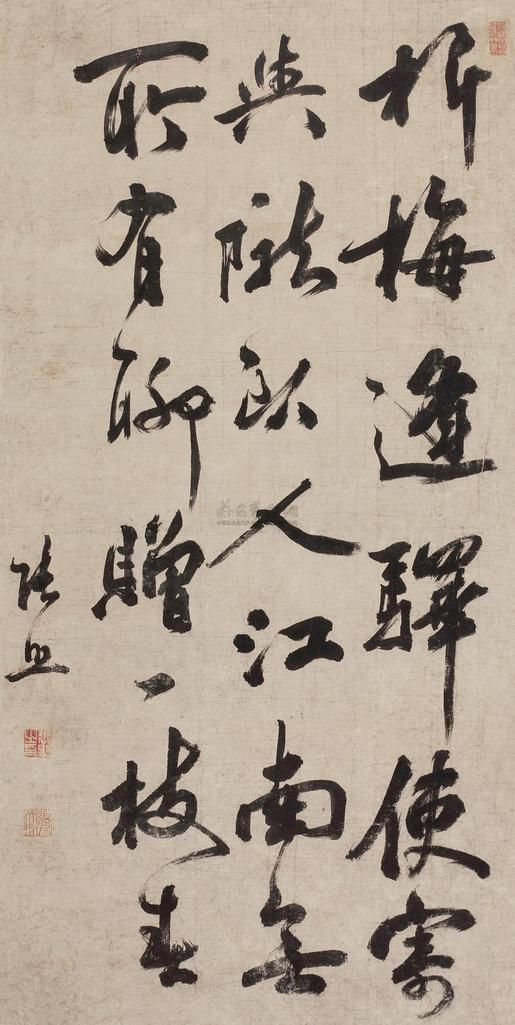 折梅逢驛使寄
與隴頭人江南無
所有聊贈一枝春
張照